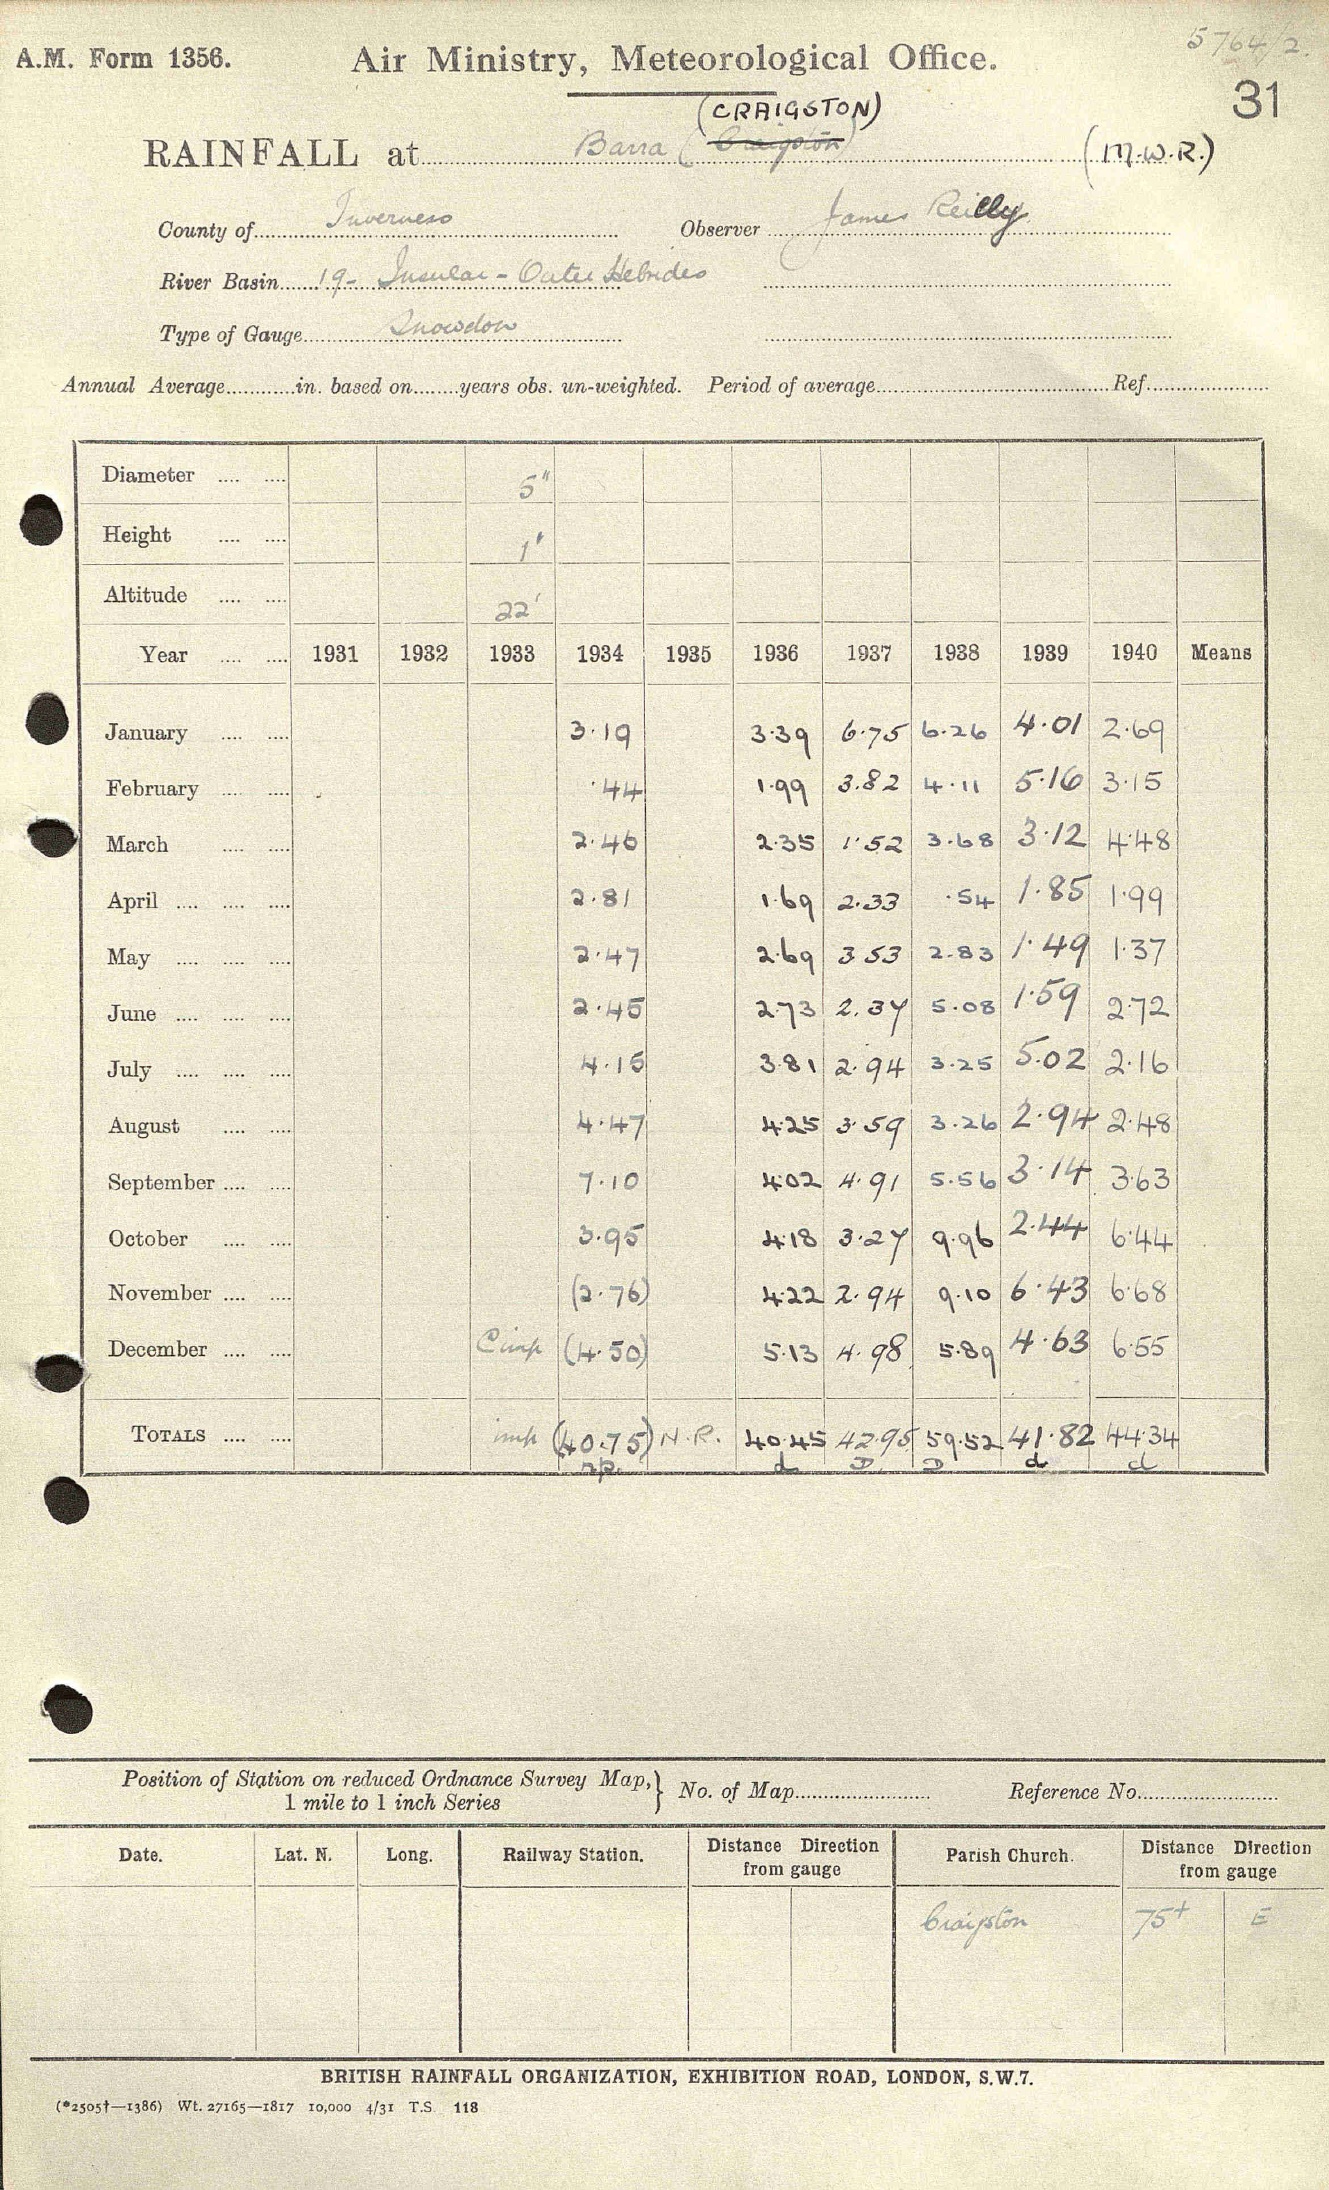 5764/2.
A.M. Form 1356. Air Ministry, Meteorological Office.
31
(CRAIGSTON)
RAINFALL at Barra (Craigston) (M.W.R.)
County of Inverness Observer James Reilly
River Basin 19 - Insular - Outer Hebrides
Type of Gauge Snowdon
Annual Average in. based on years obs. un-weighted. Period of average Ref.
Diameter 5"
Height 1'
Altitude 22'
Year 1931 1932 1933 1934 1935 1936 1937 1938 1939 1940 Means
January 3.19 3.39 6.75 6.26 4.01 2.69
February .44 1.99 3.82 4.11 5.16 3.15
March 2.46 2.35 1.52 3.68 3.12 4.48
April 2.81 1.69 2.33 .54 1.85 1.99
May 2.47 2.69 3.53 2.83 1.49 1.37
June 2.45 2.73 2.37 5.08 1.59 2.72
July 4.15 3.81 2.94 3.25 5.02 2.16
August 4.47 4.25 3.59 3.26 2.94 2.48
September 7.10 4.02 4.91 5.56 3.14 3.63
October 3.95 4.18 3.27 9.96 2.44 6.44
November (2.76) 4.22 2.94 9.10 6.43 6.68
December (4.50) 5.13 4.98 5.89 4.63 6.55
TOTALS imp (40.75) N.R. 40.45 42.95 59.52 41.82 44.34
rp. d D D d d
Position of Station on reduced Ordnance Survey Map, } No. of Map Reference No.
1 mile to 1 inch Series
Date. Lat. N. Long. Railway Station. Distance Direction from gauge Parish Church. Distance Direction from gauge
Craigston 75+ E
BRITISH RAINFALL ORGANIZATION, EXHIBITION ROAD, LONDON, S.W.7.
(*2505†—1386) Wt. 27165—1817 10,000 4/31 T.S. 118